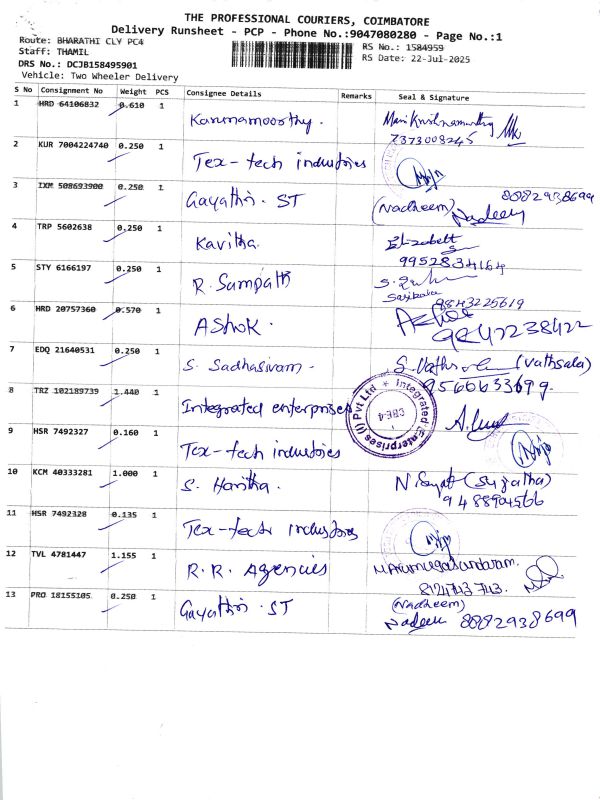 THE PROFESSIONAL COURIERS, COIMBATORE
Delivery Runsheet - PCP - Phone No.:9047080280 - Page No.:1
Route: BHARATHI CLY PC4
RS No.: 1584959
Staff: THAMIL
RS Date: 22-Jul-2025
DRS No.: DCJB158495901
Vehicle: Two Wheeler Delivery
S No Consignment No Weight PCS Consignee Details Remarks Seal & Signature
1 HRD 64106832 0.610 1 Karunamoorthy. Mani Krishnamurthy
7373008245
2 KUR 7004224740 0.250 1 Tex-tech industries
3 IXM 508693900 0.250 1 Gayathri. ST (Nadheem) Nadeem 8882938699
4 TRP 5602638 0.250 1 Kavitha. Elizabett
9952834164
5 STY 6166197 0.250 1 R. Sampath
Sasikala 9843225619
6 HRD 20757360 0.570 1 ASHOK. Ashok
9842238422
7 EDQ 21640531 0.250 1 S. Sadhasivam - S. Vathsala (Vathsala)
9566633699.
8 TRZ 102189739 1.440 1 Integrated enterprises Integrated Enterprises (I) Pvt Ltd CBE-4
9 HSR 7492327 0.160 1 Tex-tech industries
10 KCM 40333281 1.000 1 S. Haritha. N. Sujat (Sujatha)
9488904566
11 HSR 7492328 0.135 1 Tex-tech industries
12 TVL 4781447 1.155 1 R.R. Agencies M. Arumugasundaram.
8124743 743.
13 PRO 18155105 0.250 1 Gayathri. ST (Nadheem)
Nadeem 8882938699